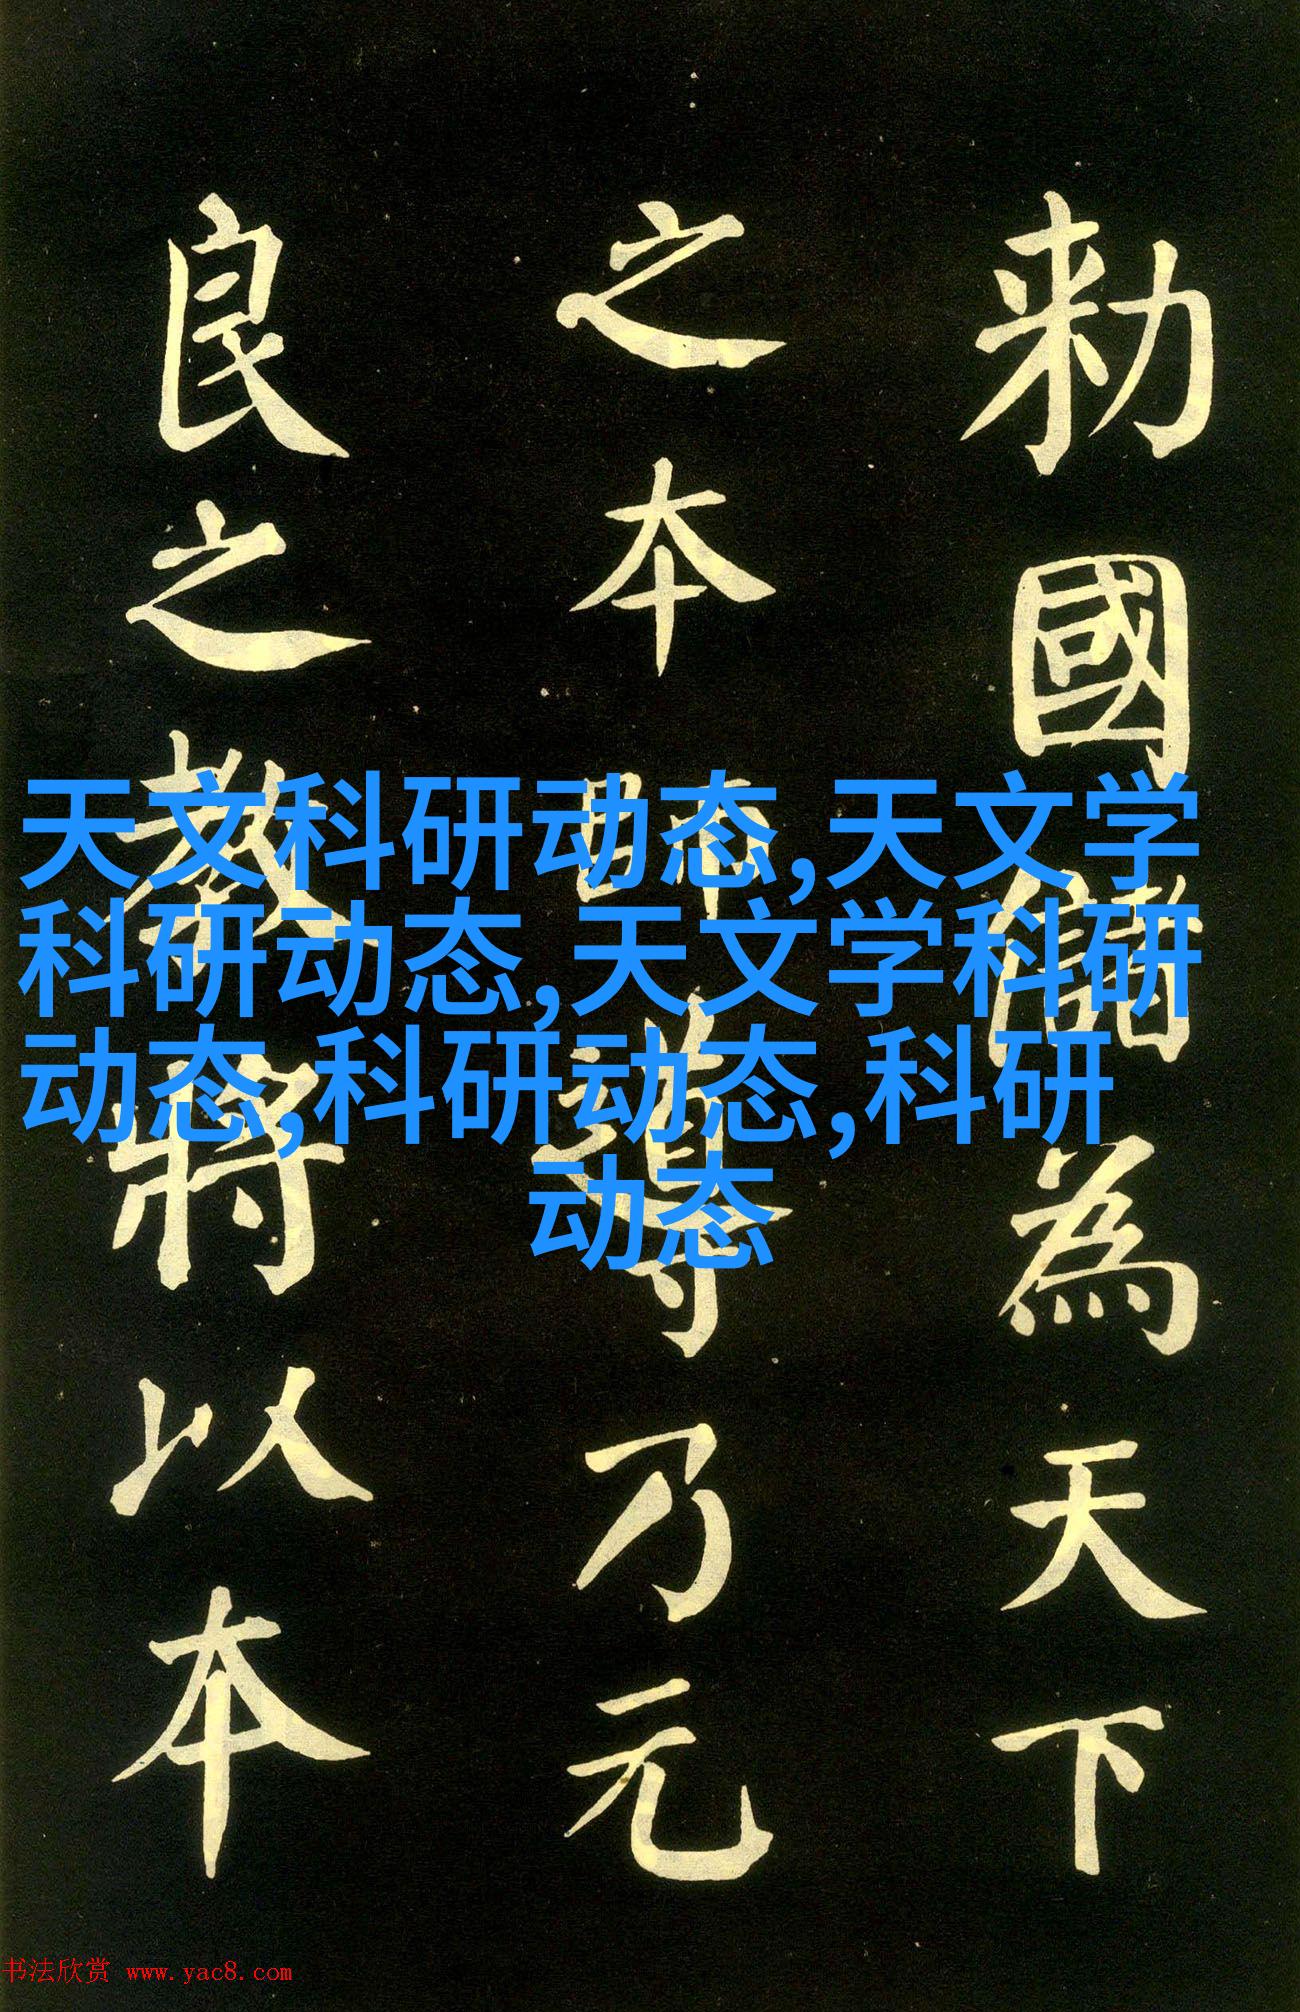 勅國儲為天下
之本師導乃元
良之教將以本
天文科研动态,天文学
科研动态,天文学科研
动态,科研动态,科研
动态
书法欣赏 www.yac8.com